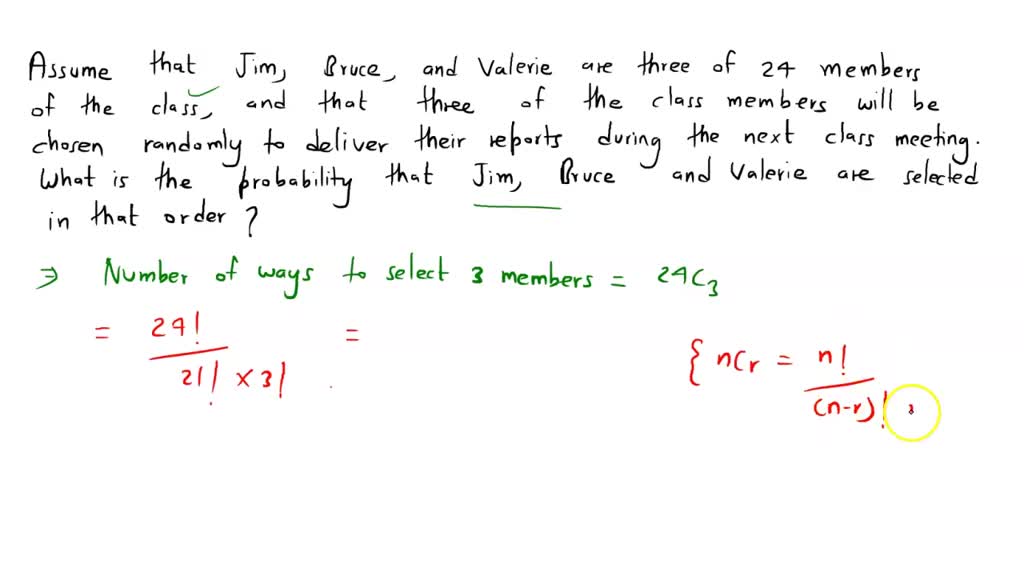 Assume that Jim, Bruce, and Valerie are three of 24 members
of the class, and that three of the class members will be
chosen randomly to deliver their reports during the next class meeting.
What is the probability that Jim, Bruce and Valerie are selected
in that order?
⇒ Number of ways to select 3 members = 24C₃
= 24! / 21! × 3! =
{ nCr = n! / (n-r)!